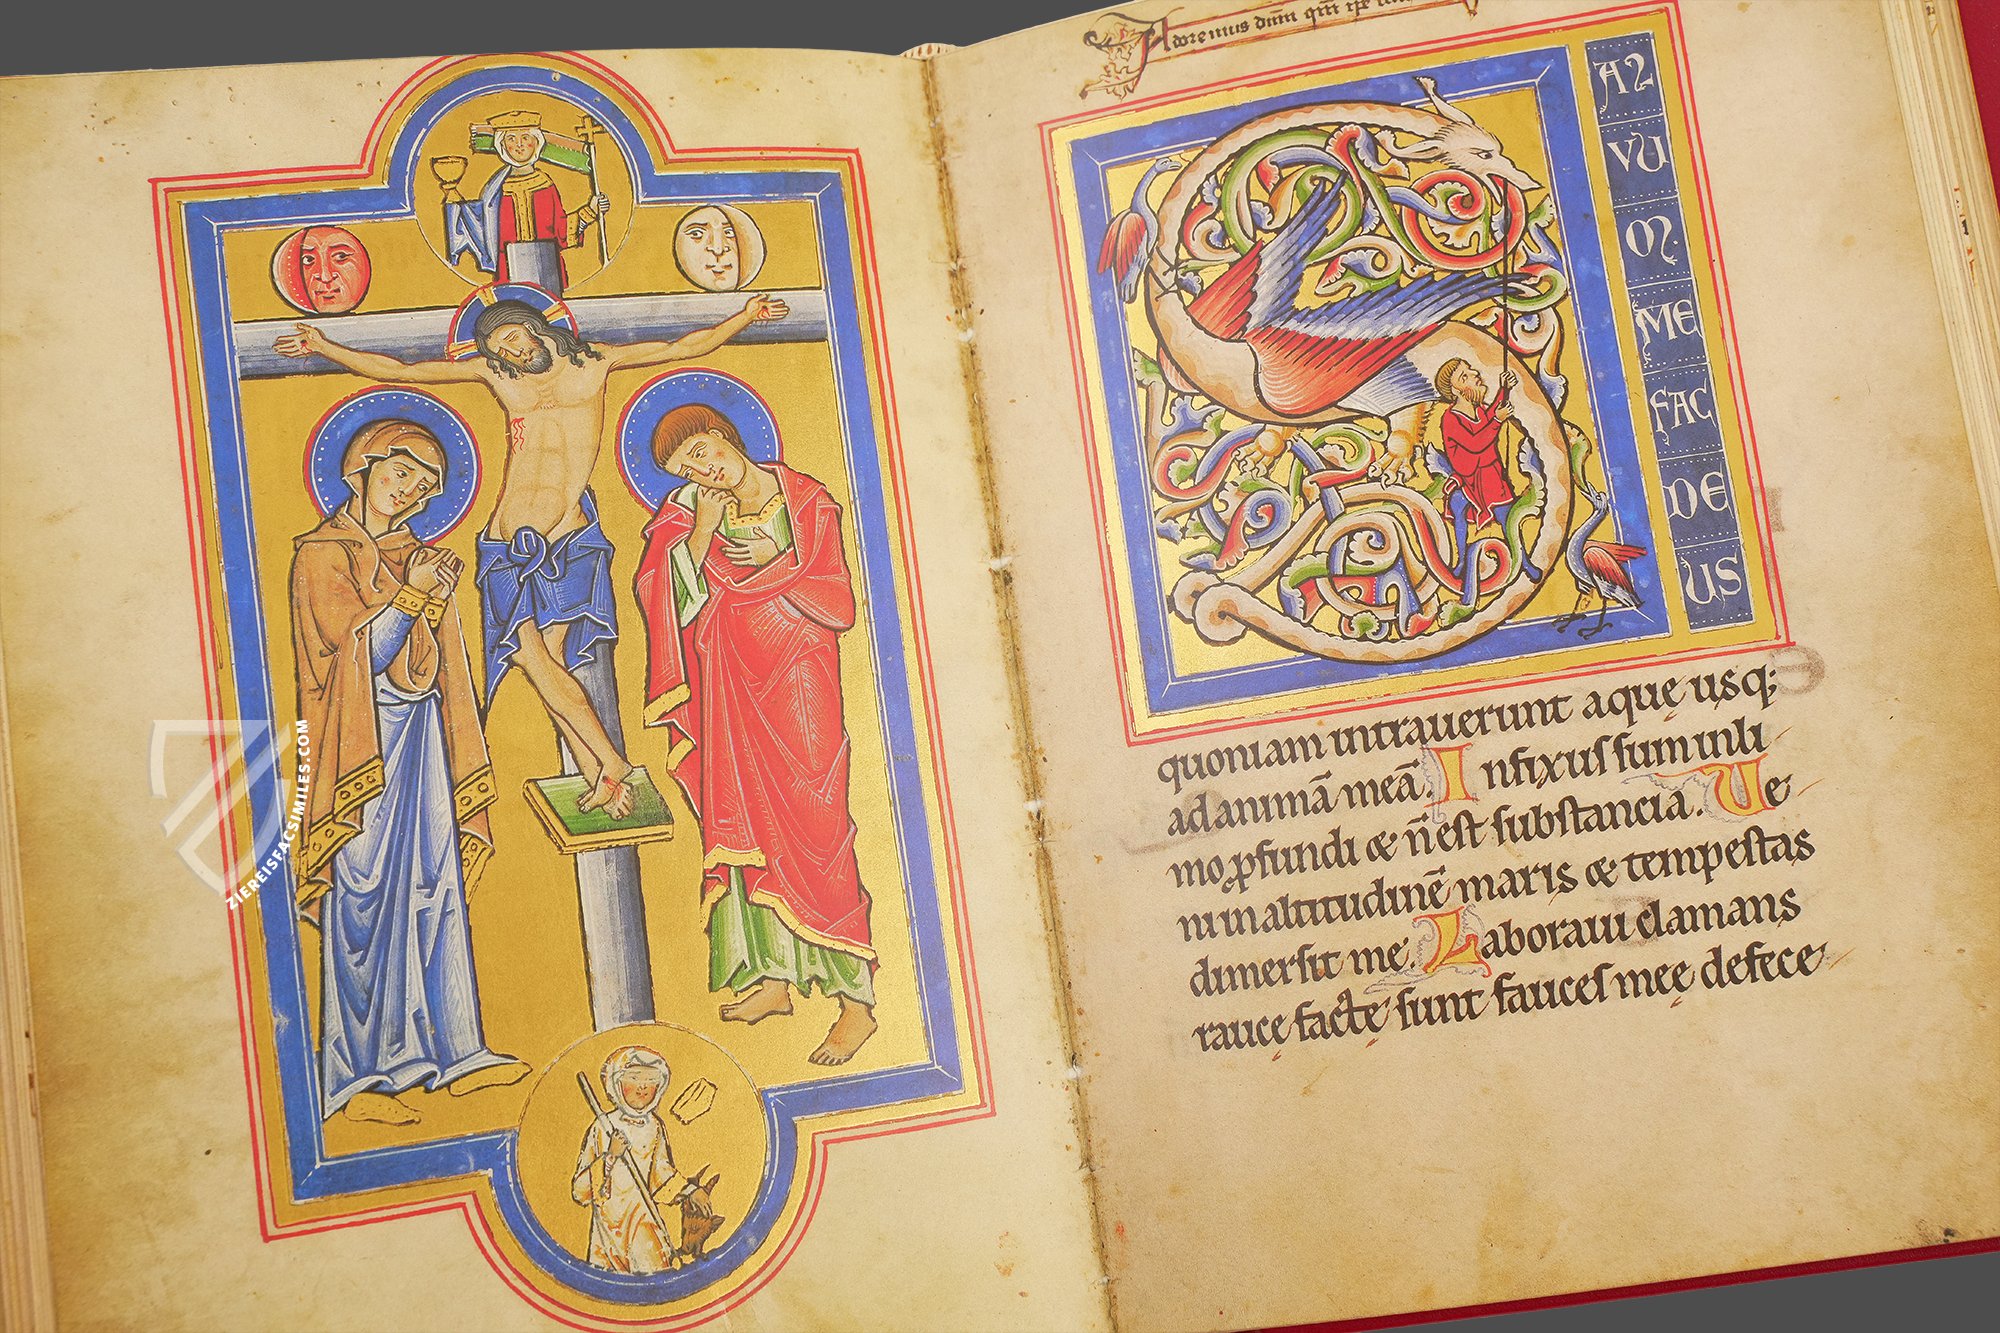 ZIEREISFACSIMILES.COM
Adoremus dñm
S
AL
VU
M
ME
FAC
DE
US
quoniam intrauerunt aque usq;
ad animã meã. Infixus sum in li
mo ꝓfundi & ñ est substancia. Ve
ni in altitudinẽ maris & tempestas
dimersit me. Laboraui clamans
rauce facte sunt fauces mee defece